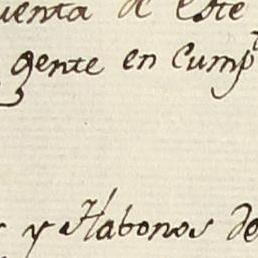 uenta de este
gente en Cump
y Habonos de